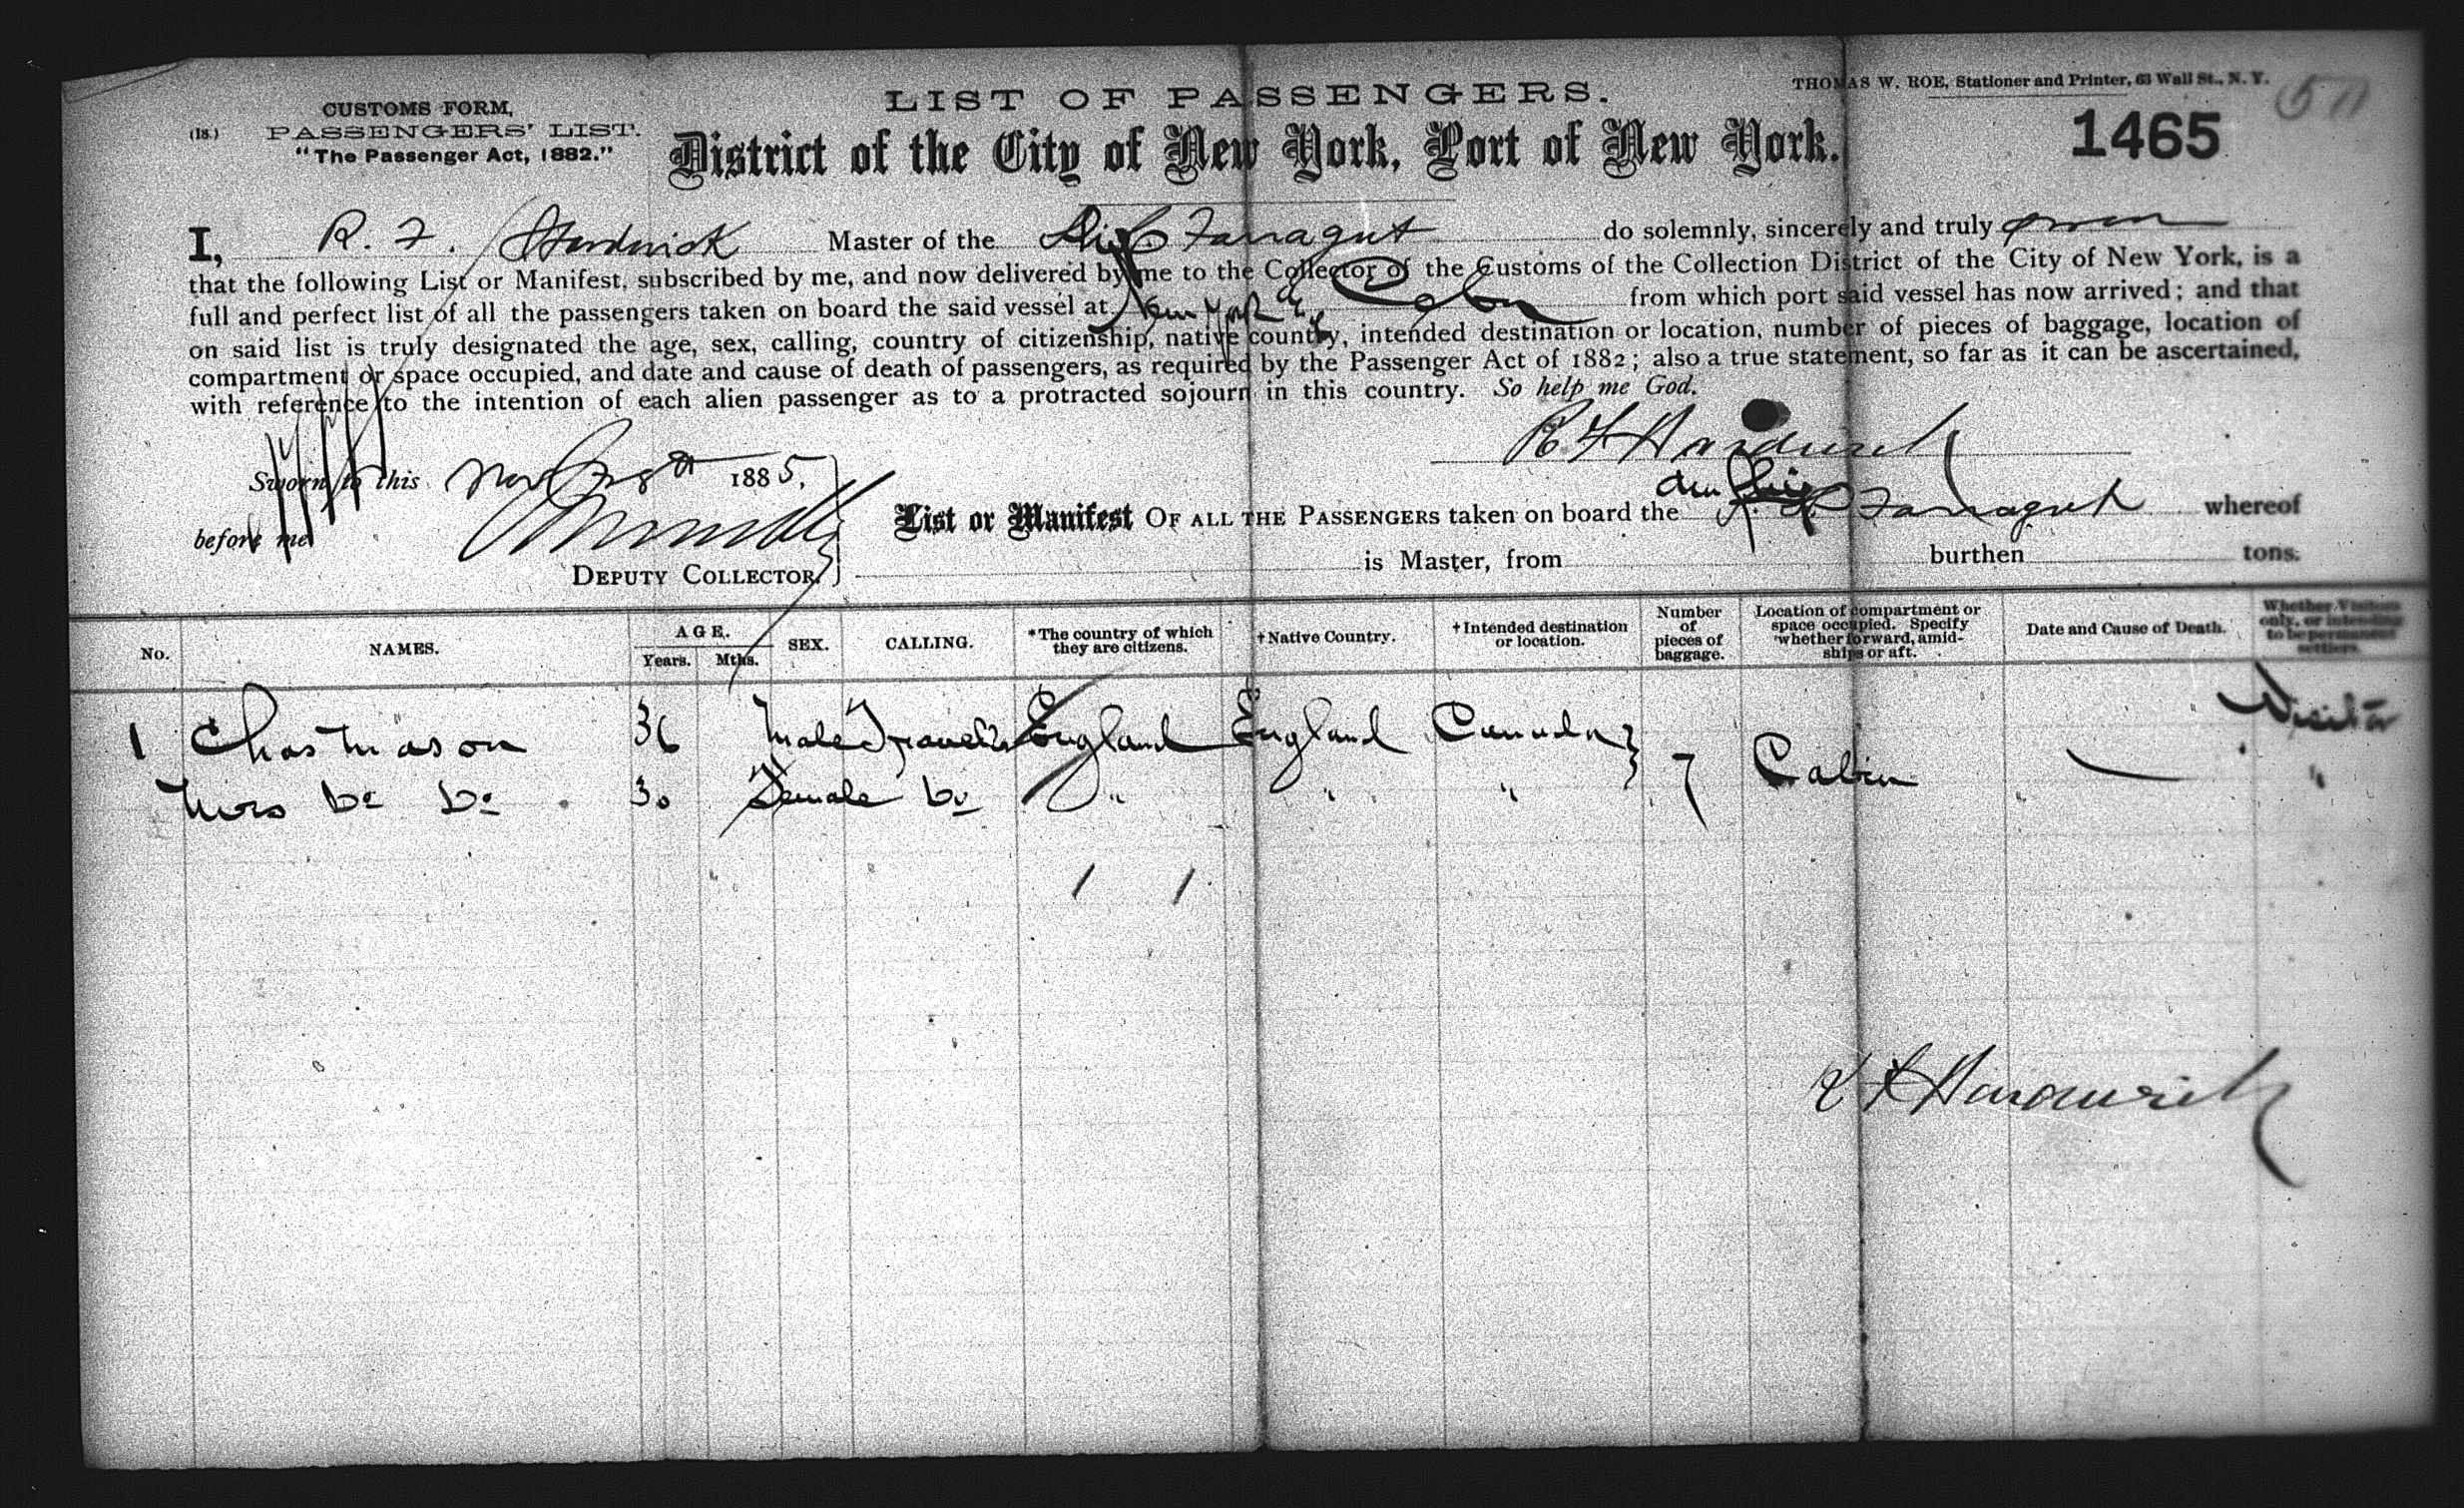 CUSTOMS FORM,
(18.) PASSENGERS' LIST.
"The Passenger Act, 1882."
LIST OF PASSENGERS.
THOMAS W. ROE, Stationer and Printer, 63 Wall St., N. Y.
1465
District of the City of New York, Port of New York.
I, R. F. Hardwick Master of the Ship Farragut do solemnly, sincerely and truly
that the following List or Manifest, subscribed by me, and now delivered by me to the Collector of the Customs of the Collection District of the City of New York, is a
full and perfect list of all the passengers taken on board the said vessel at from which port said vessel has now arrived; and that
on said list is truly designated the age, sex, calling, country of citizenship, native country, intended destination or location, number of pieces of baggage, location of
compartment or space occupied, and date and cause of death of passengers, as required by the Passenger Act of 1882; also a true statement, so far as it can be ascertained,
with reference to the intention of each alien passenger as to a protracted sojourn in this country. So help me God.
R F Hardwick
Sworn to this Nov 1885,
before me
DEPUTY COLLECTOR.
List or Manifest OF ALL THE PASSENGERS taken on board the Am Ship Farragut whereof
is Master, from burthen tons.
No. NAMES. AGE. Years. Mths. SEX. CALLING. *The country of which they are citizens. †Native Country. †Intended destination or location. Number of pieces of baggage. Location of compartment or space occupied. Specify whether forward, amidships or aft. Date and Cause of Death. Whether Visitors only, or intending to be permanent settlers.
1 Chas Mason 36 Male England England Canada 7 Cabin Visitor
Mrs Do Do 30 Female Do " " " "
1 1
R F Hardwick